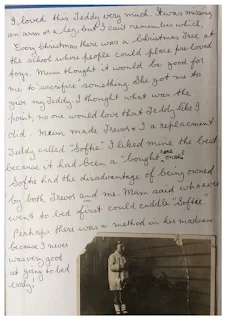 I loved this Teddy very much. It was missing
an arm or a leg, but I can't remember which.
Every Christmas there was a Christmas Tree at
the school where people could place pre-loved
toys. Mum thought it would be good for
me to sacrifice something. She got me to
give my Teddy. I thought what was the
point, no one would love that Teddy like I
did. Mum made Trevor & I a replacement
Teddy called "Softie". I liked mine the best
because it had been a "bought" one.
Softie had the disadvantage of being owned
by both Trevor and me. Mum said who ever
went to bed first could cuddle "Softie"
Perhaps there was a method in her madness
because I never
was very good
at going to bed
early.